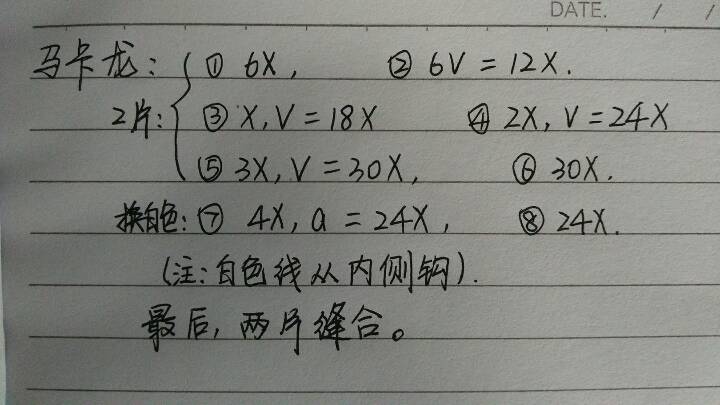 DATE. / /
马卡龙: ① 6X, ② 6V = 12X.
2片: ③ X, V = 18X ④ 2X, V = 24X
⑤ 3X, V = 30X, ⑥ 30X.
换白色: ⑦ 4X, a = 24X, ⑧ 24X.
(注: 白色线从内侧钩).
最后, 两片缝合。